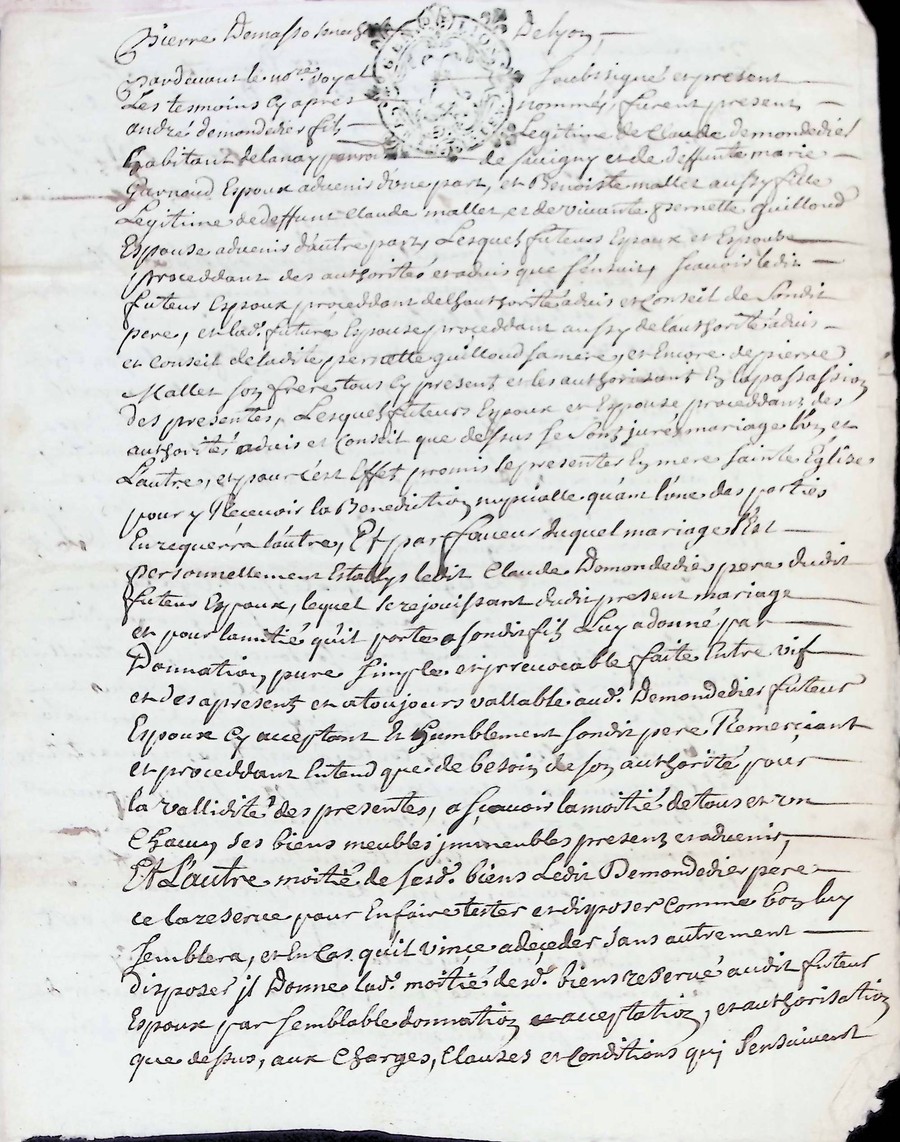 Pierre Demasso De lyon,
Pardevant le no.re royal soubssigné et present
Les tesmoins cy apres nommés, furent present,
andré demondedies filz Legitime de Claude demondedies
habitant delanay de Suvigny et de deffunte marie
Garnaud Espoux advenir d'une part, et Benoiste mallet aussy fille
Legitime de deffunt Claude mallet et de vivante pernette guilloud
Espouse advenir d'autre part, Lesquels futeurs Espoux et Espouse
proceddant des authorités et advis que s'ensuit, scavoir ledit
futeur Espoux proceddant de lhauthorité advis et Conseil de Sondit
pere, et lad. future Espouse proceddant aussy de l'authorité advis
et Conseil de ladite pernette guilloud sa mere, et Encore de pierre
Mallet son frere tous cy present et les authorisant En la passassion
des presentes, Lesquels futeurs Espoux et Espouse proceddant des
authorités advis et Conseil que dessus se sont jurés mariage l'un et
L'autre, et pour c'est Effet promis se presenter En mere sainte Eglise
pour y Recevoir la Benediction nupcialle quant l'une des parties
En requerra l'autre, Et par faveur duquel mariage s'Est
personnellement Estably ledit Claude Demondedies pere dudit
futeur Espoux, lequel se rejouissant dudit present mariage
et pour lamitié qu'il porte a sondit filz Luy a donné par
Donnation, pure simple et irrevocable faite Entre vif
et des apresent et a toujours vallable aud. Demondedies futeur
Espoux cy acceptant Et humblement sondit pere Remerciant
et proceddant Entend que de besoin de son authorité pour
la vallidité des presentes, a sçavoir la moitié de tous et un
Chacun ses biens meubles immeubles present et advenir,
Et L'autre moitié de sesd. biens Ledit Demondedies pere
ce la reserve pour En faire tester et disposer comme bon luy
semblera, et En Cas qu'il vince a deçeder sans autrement
disposer il Donne lad. moitié desd. biens reservé audit futeur
Espoux par semblable donnation acceptation, et authorisation
que dessus, aux Charges, Clauses et Conditions qui s'ensuivent